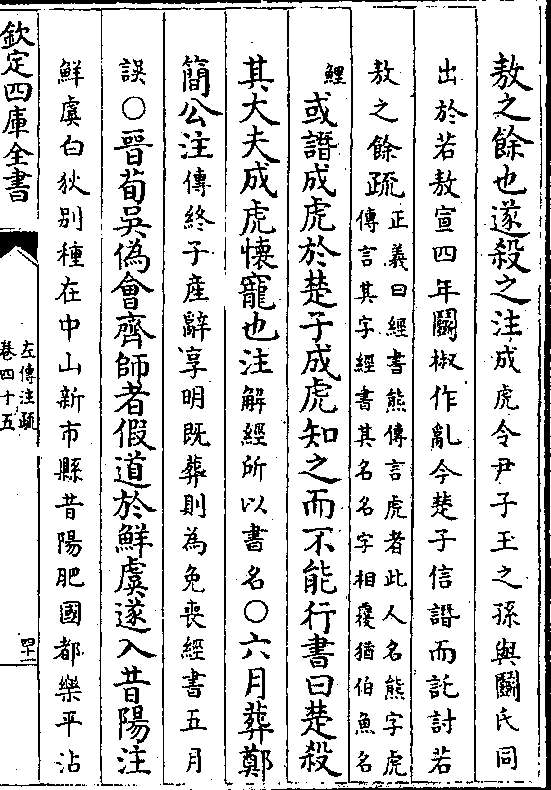 敖之餘也遂殺之注成虎令尹子玉之孫與鬬氏同
出於若敖宣四年鬬椒作亂今楚子信譖而託討若
敖之餘疏正義曰經書熊傳言虎者此人名熊字虎
傳言其字經書其名名字相覆猶伯魚名
鯉
或譖成虎於楚子成虎知之而不能行書曰楚殺
其大夫成虎懷寵也注解經所以書名○六月葬鄭
簡公注傳終子產辭享明既葬則為免喪經書五月
誤○晉荀吳偽會齊師者假道於鮮虞遂入昔陽注
鮮虞白狄别種在中山新市縣昔陽肥國都樂平沾
欽定四庫全書
左傳注疏
卷四十五
四十二